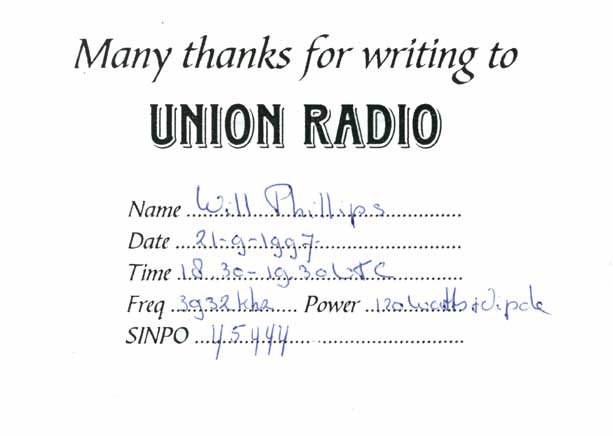 Many thanks for writing to
UNION RADIO
Name Will Phillips
Date 21-9-1997
Time 18.30-19.30 UTC
Freq 3932 khz Power 120 watts + dipole
SINPO 45444